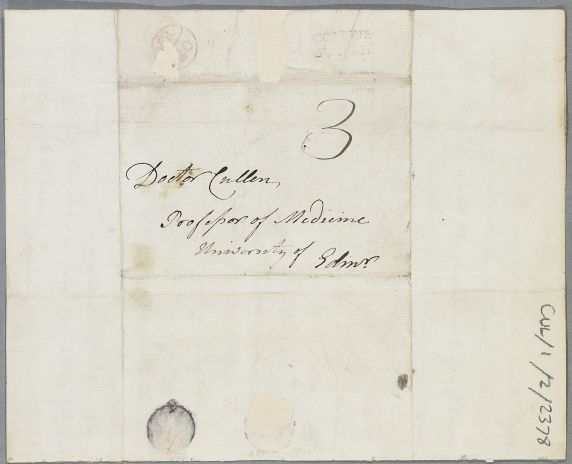 3
Doctor Cullen,
Professor of Medicine
University of
Edinr.
CUL/1/2/2378